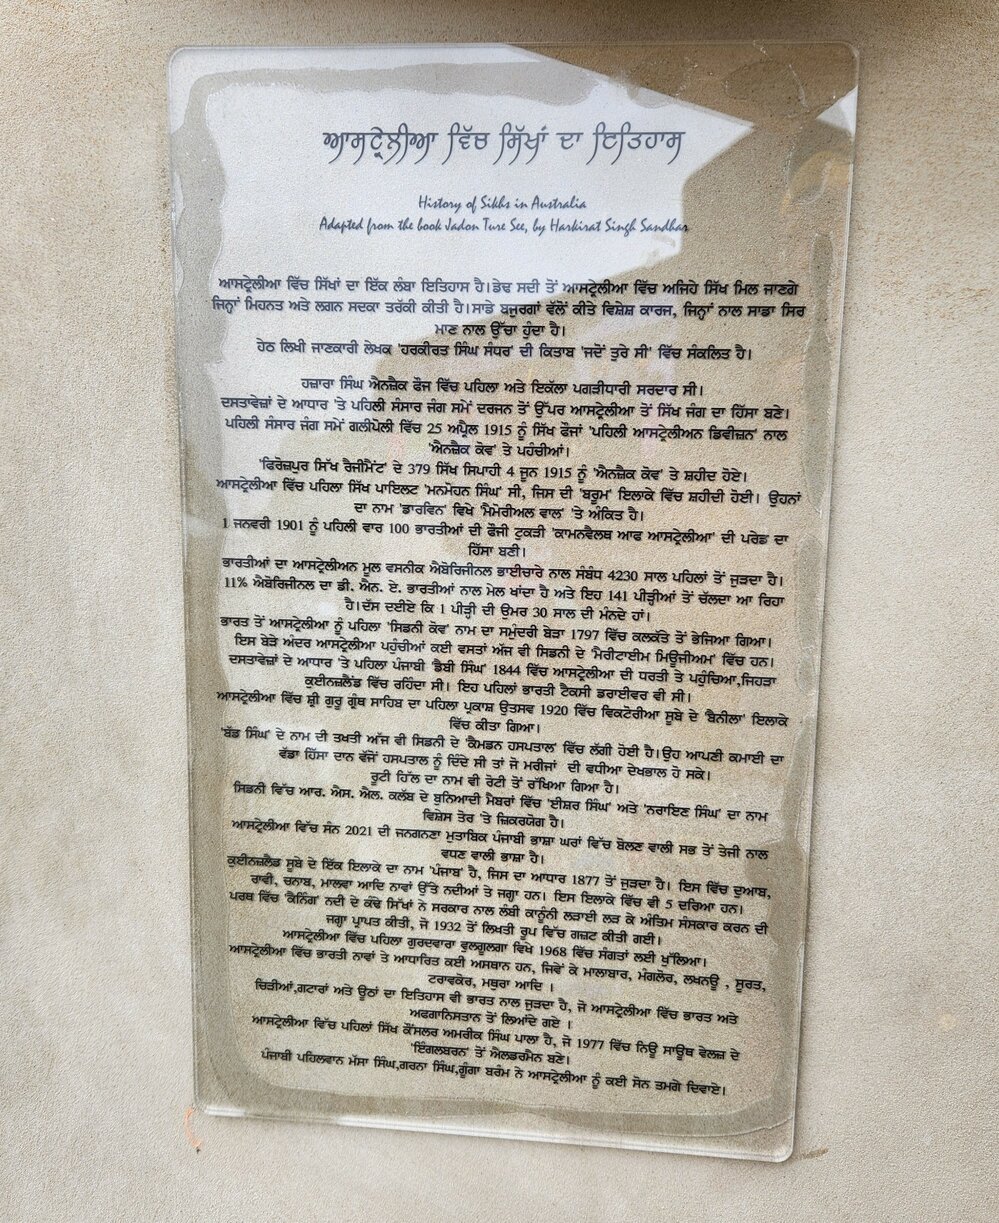 ਆਸਟ੍ਰੇਲੀਆ ਵਿੱਚ ਸਿੱਖਾਂ ਦਾ ਇਤਿਹਾਸ
History of Sikhs in Australia
Adapted from the book Jadon Ture See, by Harkirat Singh Sandhar
ਆਸਟ੍ਰੇਲੀਆ ਵਿੱਚ ਸਿੱਖਾਂ ਦਾ ਇੱਕ ਲੰਬਾ ਇਤਿਹਾਸ ਹੈ।ਡੇਢ ਸਦੀ ਤੋਂ ਆਸਟ੍ਰੇਲੀਆ ਵਿੱਚ ਅਜਿਹੇ ਸਿੱਖ ਮਿਲ ਜਾਣਗੇ
ਜਿਨ੍ਹਾਂ ਮਿਹਨਤ ਅਤੇ ਲਗਨ ਸਦਕਾ ਤਰੱਕੀ ਕੀਤੀ ਹੈ।ਸਾਡੇ ਬਜ਼ੁਰਗਾਂ ਵੱਲੋਂ ਕੀਤੇ ਵਿਸ਼ੇਸ਼ ਕਾਰਜ, ਜਿਨ੍ਹਾਂ ਨਾਲ ਸਾਡਾ ਸਿਰ
ਮਾਣ ਨਾਲ ਉੱਚਾ ਹੁੰਦਾ ਹੈ।
ਹੇਠ ਲਿਖੀ ਜਾਣਕਾਰੀ ਲੇਖਕ 'ਹਰਕੀਰਤ ਸਿੰਘ ਸੰਧਰ' ਦੀ ਕਿਤਾਬ 'ਜਦੋਂ ਤੁਰੇ ਸੀ' ਵਿੱਚ ਸੰਕਲਿਤ ਹੈ।
ਹਜ਼ਾਰਾ ਸਿੰਘ ਐਨਜ਼ੈਕ ਫੌਜ ਵਿੱਚ ਪਹਿਲਾ ਅਤੇ ਇਕੱਲਾ ਪਗੜੀਧਾਰੀ ਸਰਦਾਰ ਸੀ।
ਦਸਤਾਵੇਜ਼ਾਂ ਦੇ ਆਧਾਰ 'ਤੇ ਪਹਿਲੀ ਸੰਸਾਰ ਜੰਗ ਸਮੇਂ ਦਰਜਨ ਤੋਂ ਉੱਪਰ ਆਸਟ੍ਰੇਲੀਆ ਤੋਂ ਸਿੱਖ ਜੰਗ ਦਾ ਹਿੱਸਾ ਬਣੇ।
ਪਹਿਲੀ ਸੰਸਾਰ ਜੰਗ ਸਮੇਂ ਗਲੀਪੋਲੀ ਵਿੱਚ 25 ਅਪ੍ਰੈਲ 1915 ਨੂੰ ਸਿੱਖ ਫੌਜਾਂ 'ਪਹਿਲੀ ਆਸਟ੍ਰੇਲੀਅਨ ਡਿਵੀਜ਼ਨ' ਨਾਲ
'ਐਨਜ਼ੈਕ ਕੋਵ' ਤੇ ਪਹੰਚੀਆਂ।
'ਫਿਰੋਜ਼ਪੁਰ ਸਿੱਖ ਰੈਜੀਮੈਂਟ' ਦੇ 379 ਸਿੱਖ ਸਿਪਾਹੀ 4 ਜੂਨ 1915 ਨੂੰ 'ਐਨਜ਼ੈਕ ਕੋਵ' ਤੇ ਸ਼ਹੀਦ ਹੋਏ।
ਆਸਟ੍ਰੇਲੀਆ ਵਿੱਚ ਪਹਿਲਾ ਸਿੱਖ ਪਾਇਲਟ 'ਮਨਮੋਹਨ ਸਿੰਘ' ਸੀ, ਜਿਸ ਦੀ 'ਬਰੂਮ' ਇਲਾਕੇ ਵਿੱਚ ਸ਼ਹੀਦੀ ਹੋਈ। ਉਹਨਾਂ
ਦਾ ਨਾਮ 'ਡਾਰਵਿਨ' ਵਿਖੇ 'ਮੈਮੋਰੀਅਲ ਵਾਲ' 'ਤੇ ਅੰਕਿਤ ਹੈ।
1 ਜਨਵਰੀ 1901 ਨੂੰ ਪਹਿਲੀ ਵਾਰ 100 ਭਾਰਤੀਆਂ ਦੀ ਫੌਜੀ ਟੁਕੜੀ 'ਕਾਮਨਵੈਲਥ ਆਫ ਆਸਟ੍ਰੇਲੀਆ' ਦੀ ਪਰੇਡ ਦਾ
ਹਿੱਸਾ ਬਣੀ।
ਭਾਰਤੀਆਂ ਦਾ ਆਸਟ੍ਰੇਲੀਅਨ ਮੂਲ ਵਸਨੀਕ ਐਬੋਰਿਜੀਨਲ ਭਾਈਚਾਰੇ ਨਾਲ ਸਬੰਧ 4230 ਸਾਲ ਪਹਿਲਾਂ ਤੋਂ ਜੁੜਦਾ ਹੈ।
11% ਐਬੋਰਿਜੀਨਲ ਦਾ ਡੀ. ਐਨ. ਏ. ਭਾਰਤੀਆਂ ਨਾਲ ਮੇਲ ਖਾਂਦਾ ਹੈ ਅਤੇ ਇਹ 141 ਪੀੜ੍ਹੀਆਂ ਤੋਂ ਚੱਲਦਾ ਆ ਰਿਹਾ
ਹੈ।ਦੱਸ ਦਈਏ ਕਿ 1 ਪੀੜ੍ਹੀ ਦੀ ਉਮਰ 30 ਸਾਲ ਦੀ ਮੰਨਦੇ ਹਾਂ।
ਭਾਰਤ ਤੋਂ ਆਸਟ੍ਰੇਲੀਆ ਨੂੰ ਪਹਿਲਾ 'ਸਿਡਨੀ ਕੋਵ' ਨਾਮ ਦਾ ਸਮੁੰਦਰੀ ਬੇੜਾ 1797 ਵਿੱਚ ਕਲਕੱਤੇ ਤੋਂ ਭੇਜਿਆ ਗਿਆ।
ਇਸ ਬੇੜੇ ਅੰਦਰ ਆਸਟ੍ਰੇਲੀਆ ਪਹੁੰਚੀਆਂ ਕਈ ਵਸਤਾਂ ਅੱਜ ਵੀ ਸਿਡਨੀ ਦੇ 'ਮੈਰੀਟਾਈਮ ਮਿਊਜੀਅਮ' ਵਿੱਚ ਹਨ।
ਦਸਤਾਵੇਜ਼ਾਂ ਦੇ ਆਧਾਰ 'ਤੇ ਪਹਿਲਾ ਪੰਜਾਬੀ 'ਡੈਬੀ ਸਿੰਘ' 1844 ਵਿੱਚ ਆਸਟ੍ਰੇਲੀਆ ਦੀ ਧਰਤੀ ਤੇ ਪਹੁੰਚਿਆ,ਜਿਹੜਾ
ਕੁਈਨਜ਼ਲੈਂਡ ਵਿੱਚ ਰਹਿੰਦਾ ਸੀ। ਇਹ ਪਹਿਲਾਂ ਭਾਰਤੀ ਟੈਕਸੀ ਡਰਾਈਵਰ ਵੀ ਸੀ।
ਆਸਟ੍ਰੇਲੀਆ ਵਿੱਚ ਸ਼੍ਰੀ ਗੁਰੂ ਗ੍ਰੰਥ ਸਾਹਿਬ ਦਾ ਪਹਿਲਾ ਪ੍ਰਕਾਸ਼ ਉਤਸਵ 1920 ਵਿੱਚ ਵਿਕਟੋਰੀਆ ਸੂਬੇ ਦੇ 'ਬੈਨੀਲਾ' ਇਲਾਕੇ
ਵਿੱਚ ਕੀਤਾ ਗਿਆ।
'ਬੱਡ ਸਿੰਘ' ਦੇ ਨਾਮ ਦੀ ਤਖਤੀ ਅੱਜ ਵੀ ਸਿਡਨੀ ਦੇ 'ਕੈਮਡਨ ਹਸਪਤਾਲ' ਵਿੱਚ ਲੱਗੀ ਹੋਈ ਹੈ।ਉਹ ਆਪਣੀ ਕਮਾਈ ਦਾ
ਵੱਡਾ ਹਿੱਸਾ ਦਾਨ ਵੱਜੋਂ ਹਸਪਤਾਲ ਨੂੰ ਦਿੰਦੇ ਸੀ ਤਾਂ ਜੋ ਮਰੀਜਾਂ ਦੀ ਵਧੀਆ ਦੇਖਭਾਲ ਹੋ ਸਕੇ।
ਰੂਟੀ ਹਿੱਲ ਦਾ ਨਾਮ ਵੀ ਰੋਟੀ ਤੋਂ ਰੱਖਿਆ ਗਿਆ ਹੈ।
ਸਿਡਨੀ ਵਿੱਚ ਆਰ. ਐਸ. ਐਲ. ਕਲੱਬ ਦੇ ਬੁਨਿਆਦੀ ਮੈਂਬਰਾਂ ਵਿੱਚ 'ਈਸ਼ਰ ਸਿੰਘ' ਅਤੇ 'ਨਰਾਇਣ ਸਿੰਘ' ਦਾ ਨਾਮ
ਵਿਸ਼ੇਸ ਤੋਰ 'ਤੇ ਜ਼ਿਕਰਯੋਗ ਹੈ।
ਆਸਟ੍ਰੇਲੀਆ ਵਿੱਚ ਸੰਨ 2021 ਦੀ ਜਨਗਨਣਾ ਮੁਤਾਬਿਕ ਪੰਜਾਬੀ ਭਾਸ਼ਾ ਘਰਾਂ ਵਿੱਚ ਬੋਲਣ ਵਾਲੀ ਸਭ ਤੋਂ ਤੇਜੀ ਨਾਲ
ਵਧਣ ਵਾਲੀ ਭਾਸ਼ਾ ਹੈ।
ਕੁਈਨਜ਼ਲੈਂਡ ਸੂਬੇ ਦੇ ਇੱਕ ਇਲਾਕੇ ਦਾ ਨਾਮ 'ਪੰਜਾਬ' ਹੈ, ਜਿਸ ਦਾ ਆਧਾਰ 1877 ਤੋਂ ਜੁੜਦਾ ਹੈ। ਇਸ ਵਿੱਚ ਦੁਆਬ,
ਰਾਵੀ, ਚਨਾਬ, ਮਾਲਵਾ ਆਦਿ ਨਾਵਾਂ ਉੱਤੇ ਨਦੀਆਂ ਤੇ ਜਗ੍ਹਾ ਹਨ। ਇਸ ਇਲਾਕੇ ਵਿੱਚ ਵੀ 5 ਦਰਿਆ ਹਨ।
ਪਰਥ ਵਿੱਚ 'ਕੈਨਿੰਗ' ਨਦੀ ਦੇ ਕੰਢੇ ਸਿੱਖਾਂ ਨੇ ਸਰਕਾਰ ਨਾਲ ਲੰਬੀ ਕਾਨੂੰਨੀ ਲੜਾਈ ਲੜ ਕੇ ਅੰਤਿਮ ਸੰਸਕਾਰ ਕਰਨ ਦੀ
ਜਗ੍ਹਾ ਪ੍ਰਾਪਤ ਕੀਤੀ, ਜੋ 1932 ਤੋਂ ਲਿਖਤੀ ਰੂਪ ਵਿੱਚ ਗਜ਼ਟ ਕੀਤੀ ਗਈ।
ਆਸਟ੍ਰੇਲੀਆ ਵਿੱਚ ਪਹਿਲਾ ਗੁਰਦਵਾਰਾ ਵੁਲਗੂਲਗਾ ਵਿਖੇ 1968 ਵਿੱਚ ਸੰਗਤਾਂ ਲਈ ਖੁੱਲਿਆ।
ਆਸਟ੍ਰੇਲੀਆ ਵਿੱਚ ਭਾਰਤੀ ਨਾਵਾਂ ਤੇ ਆਧਾਰਿਤ ਕਈ ਅਸਥਾਨ ਹਨ, ਜਿਵੇਂ ਕੇ ਮਾਲਾਬਾਰ, ਮੰਗਲੋਰ, ਲਖਨਊ , ਸੂਰਤ,
ਟਰਾਵਕੋਰ, ਮਥੁਰਾ ਆਦਿ ।
ਚਿੜੀਆਂ,ਗਟਾਰਾਂ ਅਤੇ ਊਠਾਂ ਦਾ ਇਤਿਹਾਸ ਵੀ ਭਾਰਤ ਨਾਲ ਜੁੜਦਾ ਹੈ, ਜੋ ਆਸਟ੍ਰੇਲੀਆ ਵਿੱਚ ਭਾਰਤ ਅਤੇ
ਅਫਗਾਨਿਸਤਾਨ ਤੋਂ ਲਿਆਂਦੇ ਗਏ ।
ਆਸਟ੍ਰੇਲੀਆ ਵਿੱਚ ਪਹਿਲਾਂ ਸਿੱਖ ਕੌਂਸਲਰ ਅਮਰੀਕ ਸਿੰਘ ਪਾਲਾ ਹੈ, ਜੋ 1977 ਵਿੱਚ ਨਿਊ ਸਾਊਥ ਵੇਲਜ਼ ਦੇ
'ਇੰਗਲਬਰਨ' ਤੋਂ ਐਲਡਰਮੈਨ ਬਣੇ।
ਪੰਜਾਬੀ ਪਹਿਲਵਾਨ ਮੱਸਾ ਸਿੰਘ,ਗਰਨਾ ਸਿੰਘ,ਗੂੰਗਾ ਬਰੰਮ ਨੇ ਆਸਟ੍ਰੇਲੀਆ ਨੂੰ ਕਈ ਸੋਨ ਤਮਗੇ ਦਿਵਾਏ।